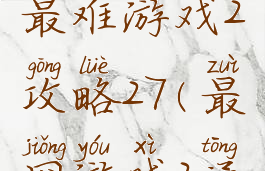 最难游戏2
gōng lüè zuì
攻略27(最
jiǒng yóu xì tōng
囧游戏2通